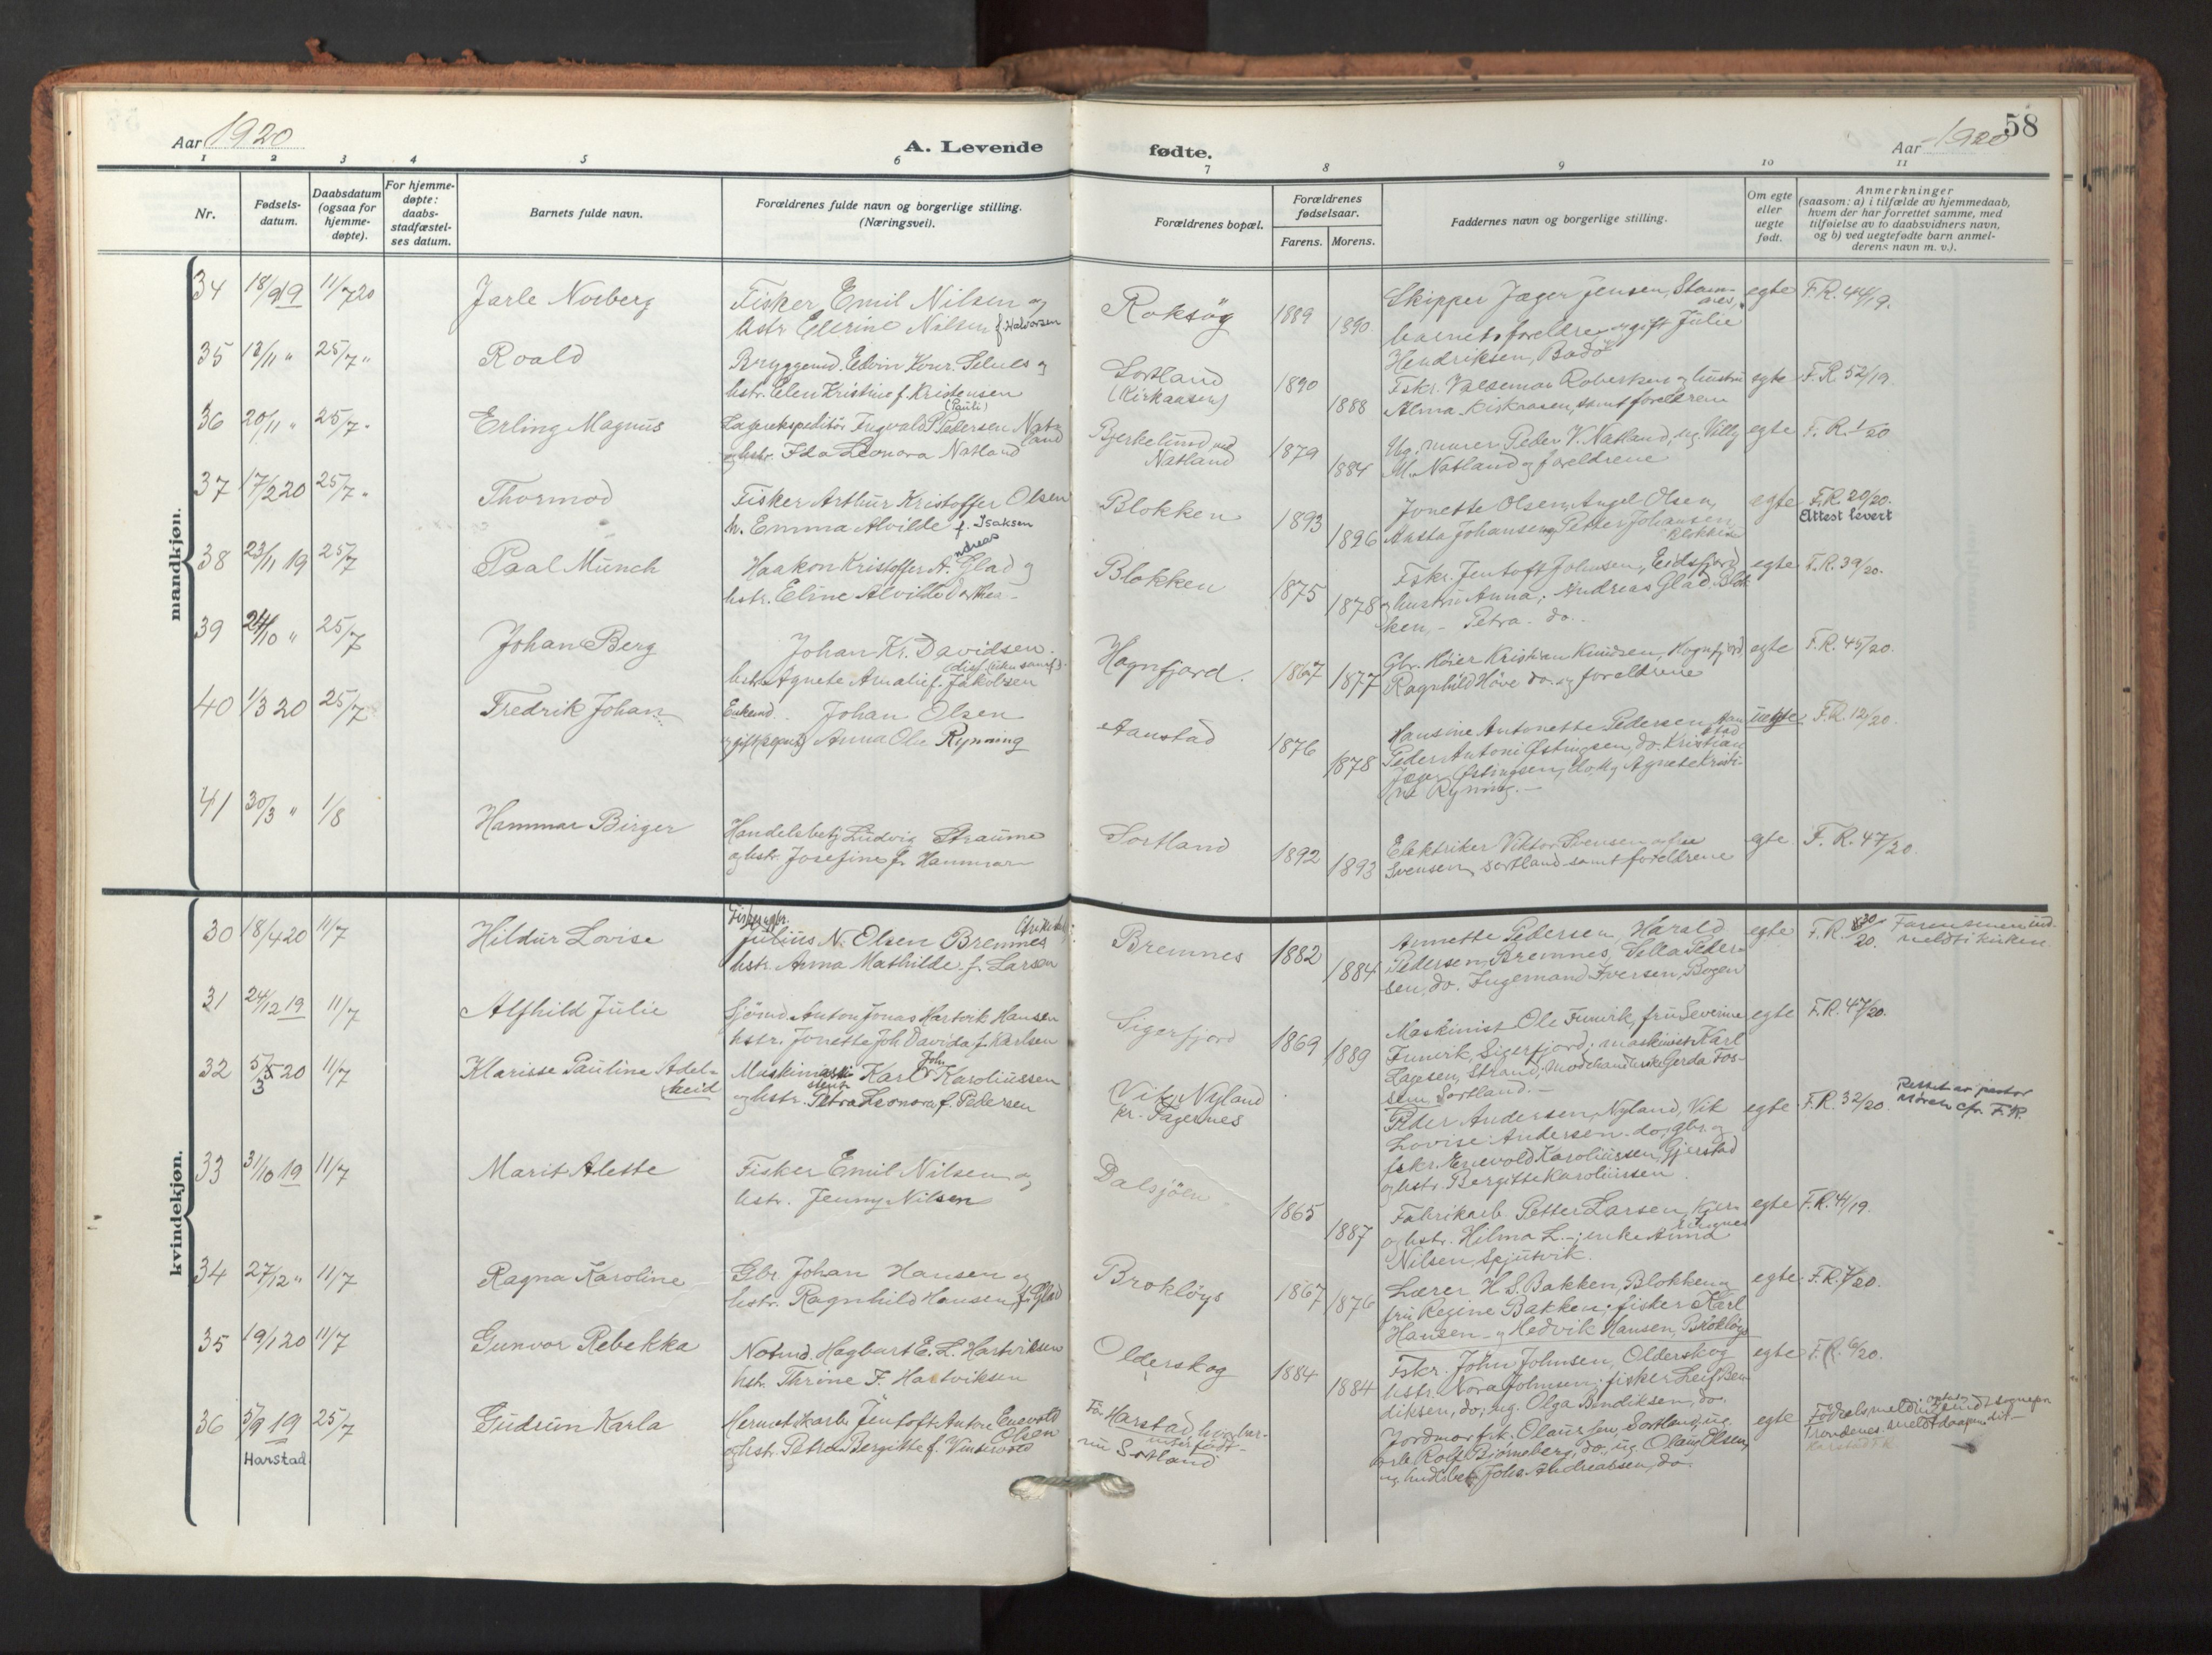 Aar 1920
A. Levende
fødte.
Aar 1920
58
1 2 3 4 5 6 7 8 9 10 11
Nr.
Fødsels-
datum.
Daabsdatum
(ogsaa for
hjemme-
døpte).
For hjemme-
døpte:
daabs-
stadfæstel-
ses datum.
Barnets fulde navn.
Forældrenes fulde navn og borgerlige stilling.
(Næringsvei).
Forældrenes bopæl.
Forældrenes
fødselsaar.
Farens. Morens.
Faddernes navn og borgerlige stilling.
Om egte
eller
uegte
født.
Anmerkninger
(saasom: a) i tilfælde av hjemmedaab,
hvem der har forrettet samme, med
tilføielse av to daabsvidners navn,
og b) ved uegtefødte barn anmel-
derens navn m. v.).
mandkjøn.
34 18/9 19 11/7 20 Jarle Norberg
Fisker Emil Nilsen og
hstr. Ellerine Nilsen f. Halvorsen
Roksøy 1889 1890
Skipper Jæger Jensen,
barnets foreldre og gift Julie
Hendriksen, Badö
egte F.R. 44/19.
35 18/11 " 25/7 " Roald
Bryggemd. Edvin Konr.
hstr. Elen Kristine f. Kristensen
Sortland
(Kirkaasen)
1890 1888
Fskr. Valdemar Robertsen og hustru
Alma Kirkaasen, samt foreldrene
egte F.R. 52/19
36 20/11 " 25/7 " Erling Magnus
(Pauli)
Lagerekspeditör Ingvald P. Pedersen Nat-
land
og hstr. Ida Leonora Natland
Bjerkelund ved
Natland
1879 1884
Ug. murer Peder V. Natland, ug. Villy
M. Natland og foreldrene
egte F.R. 1/20
37 17/2 20 25/7 " Thormod
Fisker Arthur Kristoffer Olsen
h. Emma Alvilde f. Isaksen
Blokken 1893 1896
Jonette Olsen, Angel Olsen,
Aasta Johansen og Petter Johansen
Blokken
egte F.R. 20/20.
Attest levert
38 23/11 19 25/7 Paal Münch
Haakon Kristoffer Andreas Glad og
hstr. Eline Alvilde Dorthea
Blokken 1875 1878
Fskr. Jentoft Johnsen, Eidsfjord
og hustru Anna; Andreas Glad, Blok-
ken, - Petra do.
egte F.R. 39/20.
39 24/10 " 25/7 Johan Berg
Johan Kr. Davidsen.
hstr. Agnete Amalie f. Jakobsen
Hognfjord. 1867 1877
Gbr. Höier Kristian Knudsen, Hognfjord
Ragnhild Höve do. og foreldrene
egte F.R. 45/20.
40 1/3 20 25/7 Fredrik Johan
Enkemd. Johan Olsen
og gift (separ.) Anna Ole Rynning
Aanstad 1876 1878
Hansine Antonette Pedersen Aan-
stad
Peder Antoni Östingsen, do. Kristian
Jæger Östingsen, do. og Agnete Kristi-
ne Ryning. -
uegte F.R. 12/20.
41 30/3 " 1/8 Hammar Birger
Handelsbetj. Ludvig Straume
og hstr. Josefine f. Hammar
Sortland 1892 1893
Elektriker Viktor Svensen og frue
Svensen, Sortland samt foreldrene
egte F.R. 47/20.
kvindekjøn.
30 18/4 20 11/7 Hildur Lovise
Fisker og gbr.
Julius N. Olsen Bremnes
hstr. Anna Mathilde f. Larsen
Bremnes 1882 1884
Annette Pedersen, Harald
Pedersen, Bremnes, Sella Peder-
sen, do. Ingemand Iversen, Bogen
egte F.R. 30/20.
31 24/12 19 11/7 Alfhild Julie
Sjömd. Anton Jonas Hartvik Hansen
hstr. Jonette Joh. Davida f. Karlsen
Sigerfjord 1869 1889
Maskinist Ole Funvik, fru Severine
Funvik, Sigerfjord; maskinist Karl
Lagesen, Strand; Modehandlerske Gerda Fos-
sem Sortland. -
egte F.R. 47/20.
32 5/3 20 11/7 Klarisse Pauline Adel-
heid
Maskinassistent Karl Joh. Karoliussen
og hstr. Petra Leonora f. Pedersen
Vik, Nyland
pr. Fagernes
Peder Andersen, Nyland, Vik
Lovise Andersen do, gbr. og
fskr. Enevold Karoliussen, Gjerstad
og hstr. Bergitte Karoliussen.
egte F.R. 32/20.
33 31/10 19 11/7 Marit Alette
Fisker Emil Nilsen og
hstr. Jenny Nilsen
Dalsjöen 1865 1887
Fabrikarb. Petter Larsen,
og hstr. Hilma L. -; enke Anna
Nilsen, Spjutvik.
egte F.R. 41/19.
34 27/12 " 11/7 Ragna Karoline
Gbr. Johan Hansen og
hstr. Ragnhild Hansen f. Glad
Brokløys 1867 1876
Lærer H. S. Bakken, Blokken og
fru Regine Bakken; fisker Karl
Hansen og Hedvik Hansen, Brokløys
egte F.R. 7/20.
35 19/1 20 11/7 Gunvor Rebekka
Notmd. Hagbart E. L. Hartviksen
hstr. Thrine F. Hartviksen
Olderskog 1884 1884
Fskr. John Johnsen, Olderskog
hstr. Nora Johnsen; fisker Leif Ben-
diksen, do; ug. Olga Bendiksen, do.
egte F.R. 6/20.
36 5/9 19 25/7 Gudrun Karla
Harstad
Hermetikarb. Jentoft Anton Enevold
Olsen
og hstr. Petra Bergitte f. Vintervold
Harstad, hvor bar-
net er født -
nu Sortland
Jordmor frk. Olaussen, Sortland, ug.
arb. Rolf Bjørneberg, do, ug. Olaug Olsen,
ug. hndlsbetj. Johs. Andreassen, do.
egte